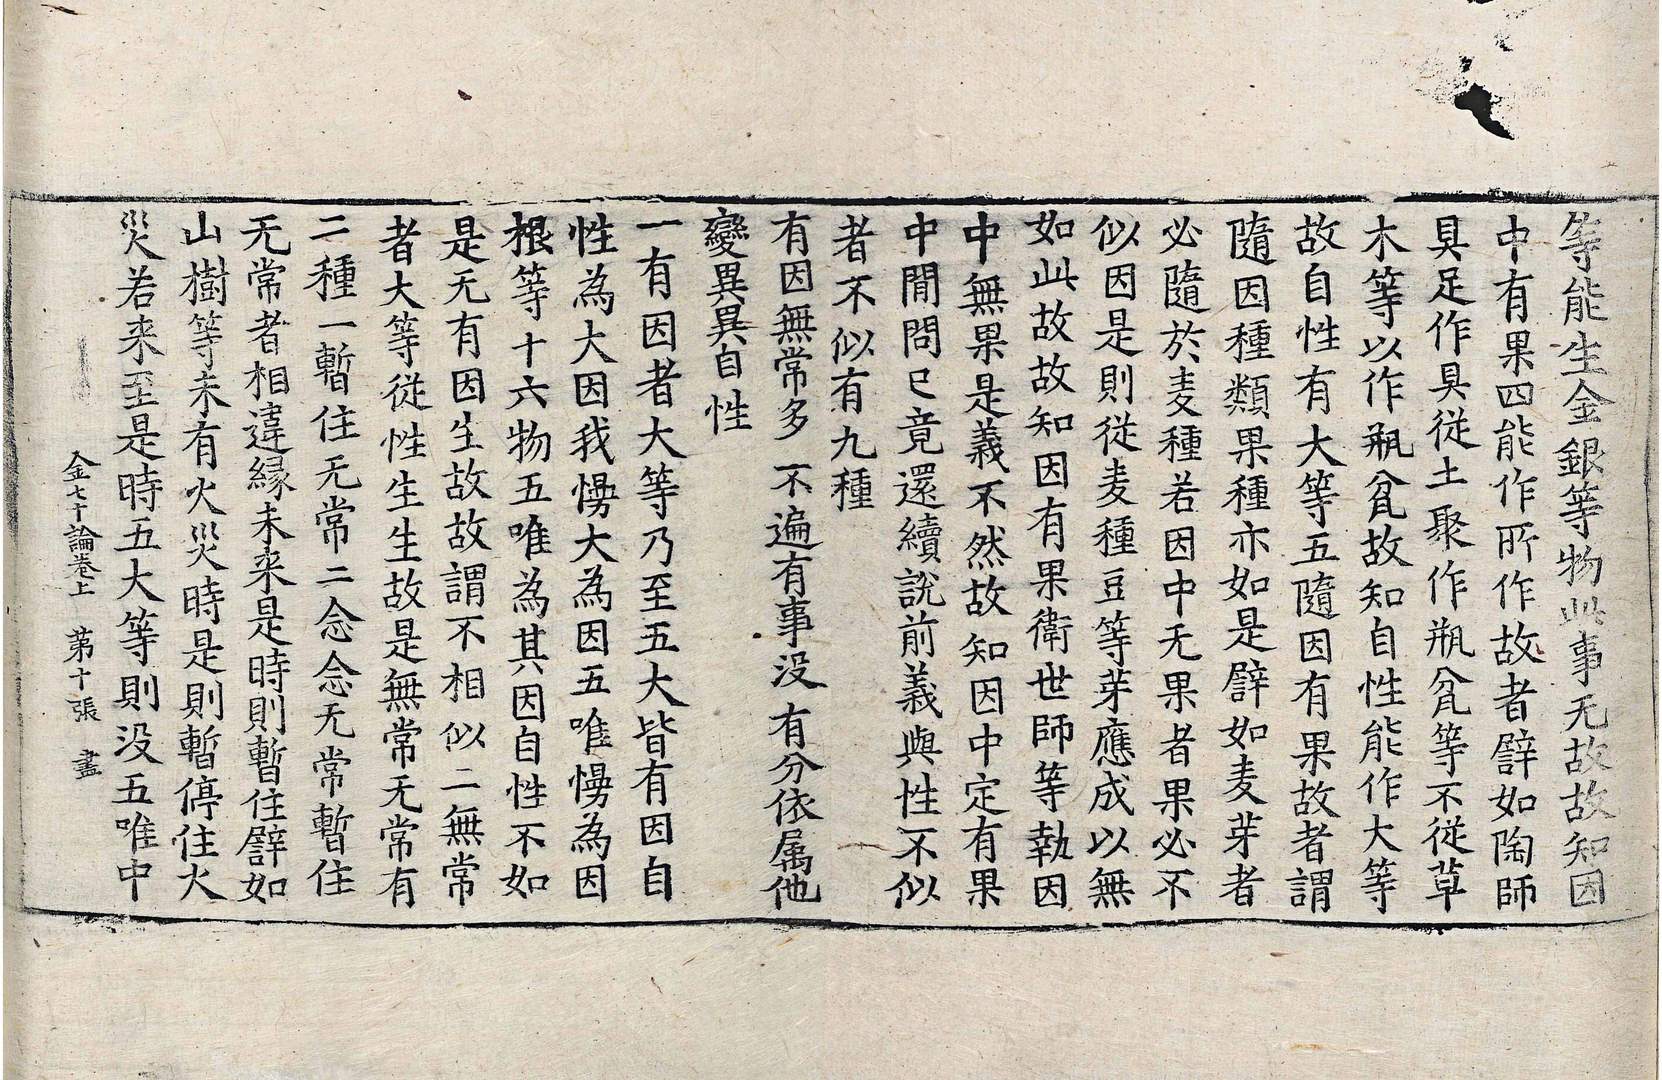 等能生金銀等物此事无故故知因
中有果四能作所作故者譬如陶師
具足作具従土聚作瓶瓫等不従草
木等以作瓶瓫故知自性能作大等
故自性有大等五隨因有果故者謂
隨因種類果種亦如是譬如麦芽者
必隨於麦種若因中无果者果必不
似因是則従麦種豆等芽應成以無
如此故故知因有果衛世師等執因
中無果是義不然故知因中定有果
中間問已竟還續說前義與性不似
者不似有九種
有因無常多　不遍有事没　有分依属他
變異異自性
一有因者大等乃至五大皆有因自
性為大因我慢大為因五唯慢為因
根等十六物五唯為其因自性不如
是无有因生故故謂不相似二無常
者大等従性生生故是無常无常有
二種一暫住无常二念念无常暫住
无常者相違縁未来是時則暫住譬如
山樹等未有火災時是則暫停住火
災若来至是時五大等則没五唯中
金七十論卷上　第十張　盡